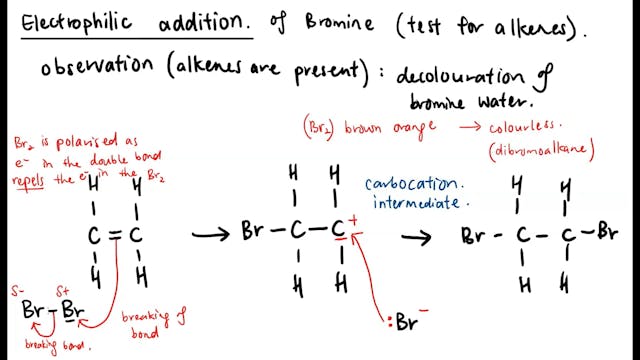 Electrophilic addition. of Bromine (test for alkenes).
observation (alkenes are present): decolouration of
bromine water.
(Br2) brown orange → colourless.
(dibromoalkane)
Br2 is polarised as
e- in the double bond
repels the e- in the Br2
carbocation
intermediate.
H H
C=C
H H
δ- δ+
Br-Br
breaking bond.
breaking of
bond
→
H H
Br-C-C+
H H
:Br-
→
H H
Br-C-C-Br
H H